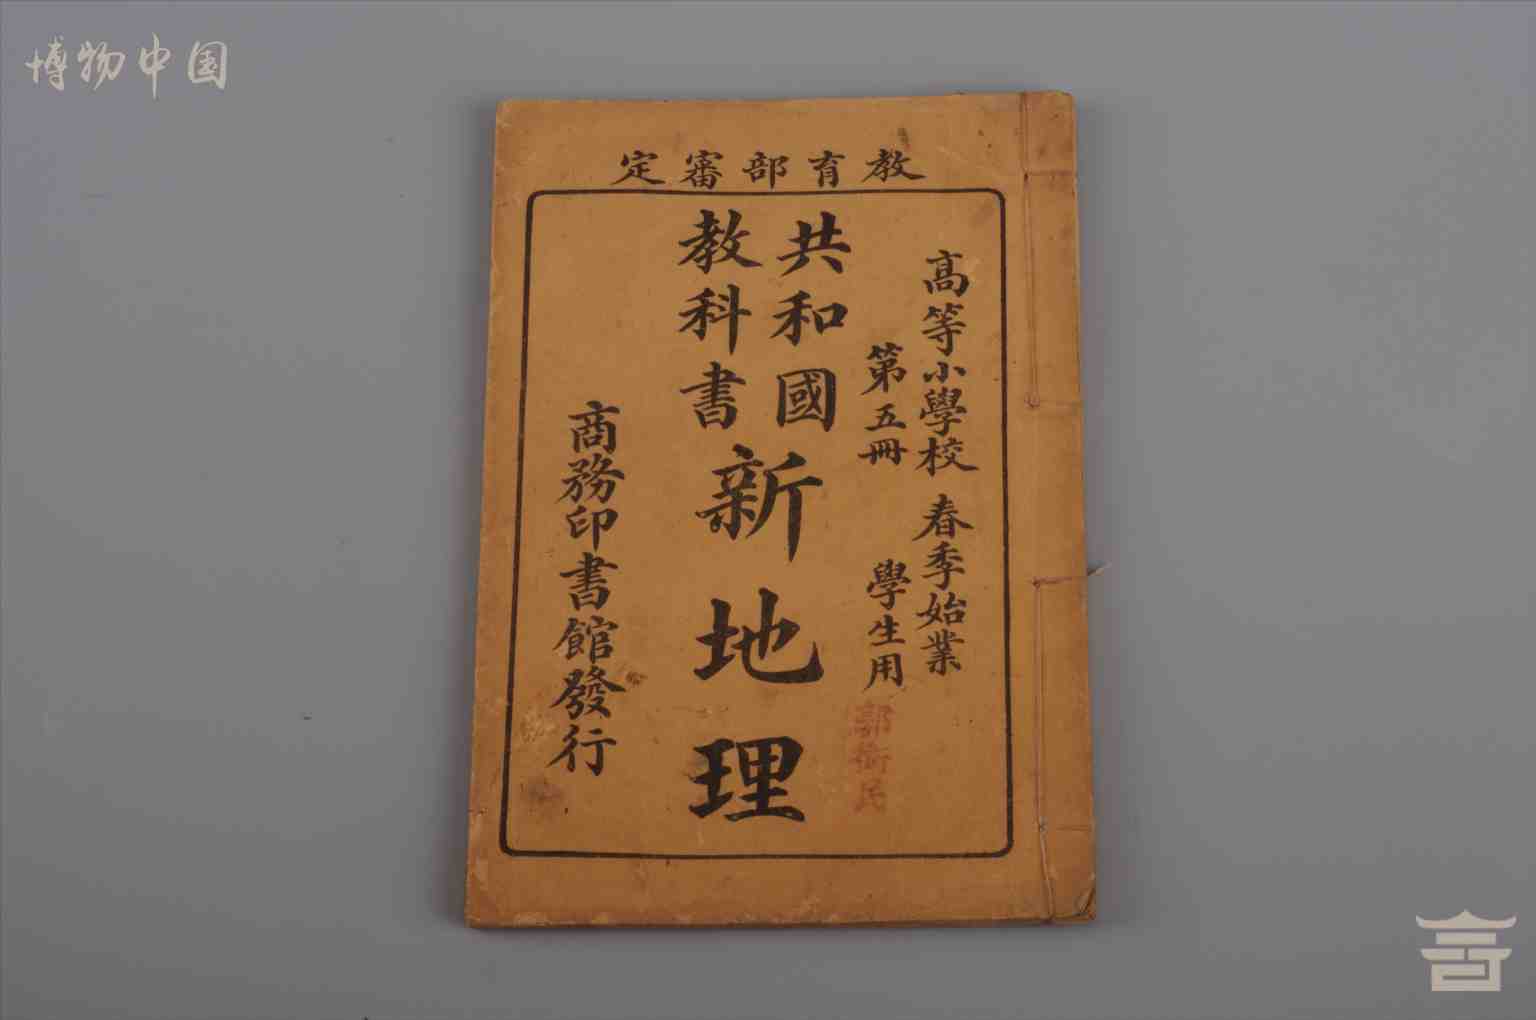 博物中国
教育部審定
高等小學校 春季始業
第五冊 學生用
共和國
教科書
新地理
商務印書館發行
郭衛民